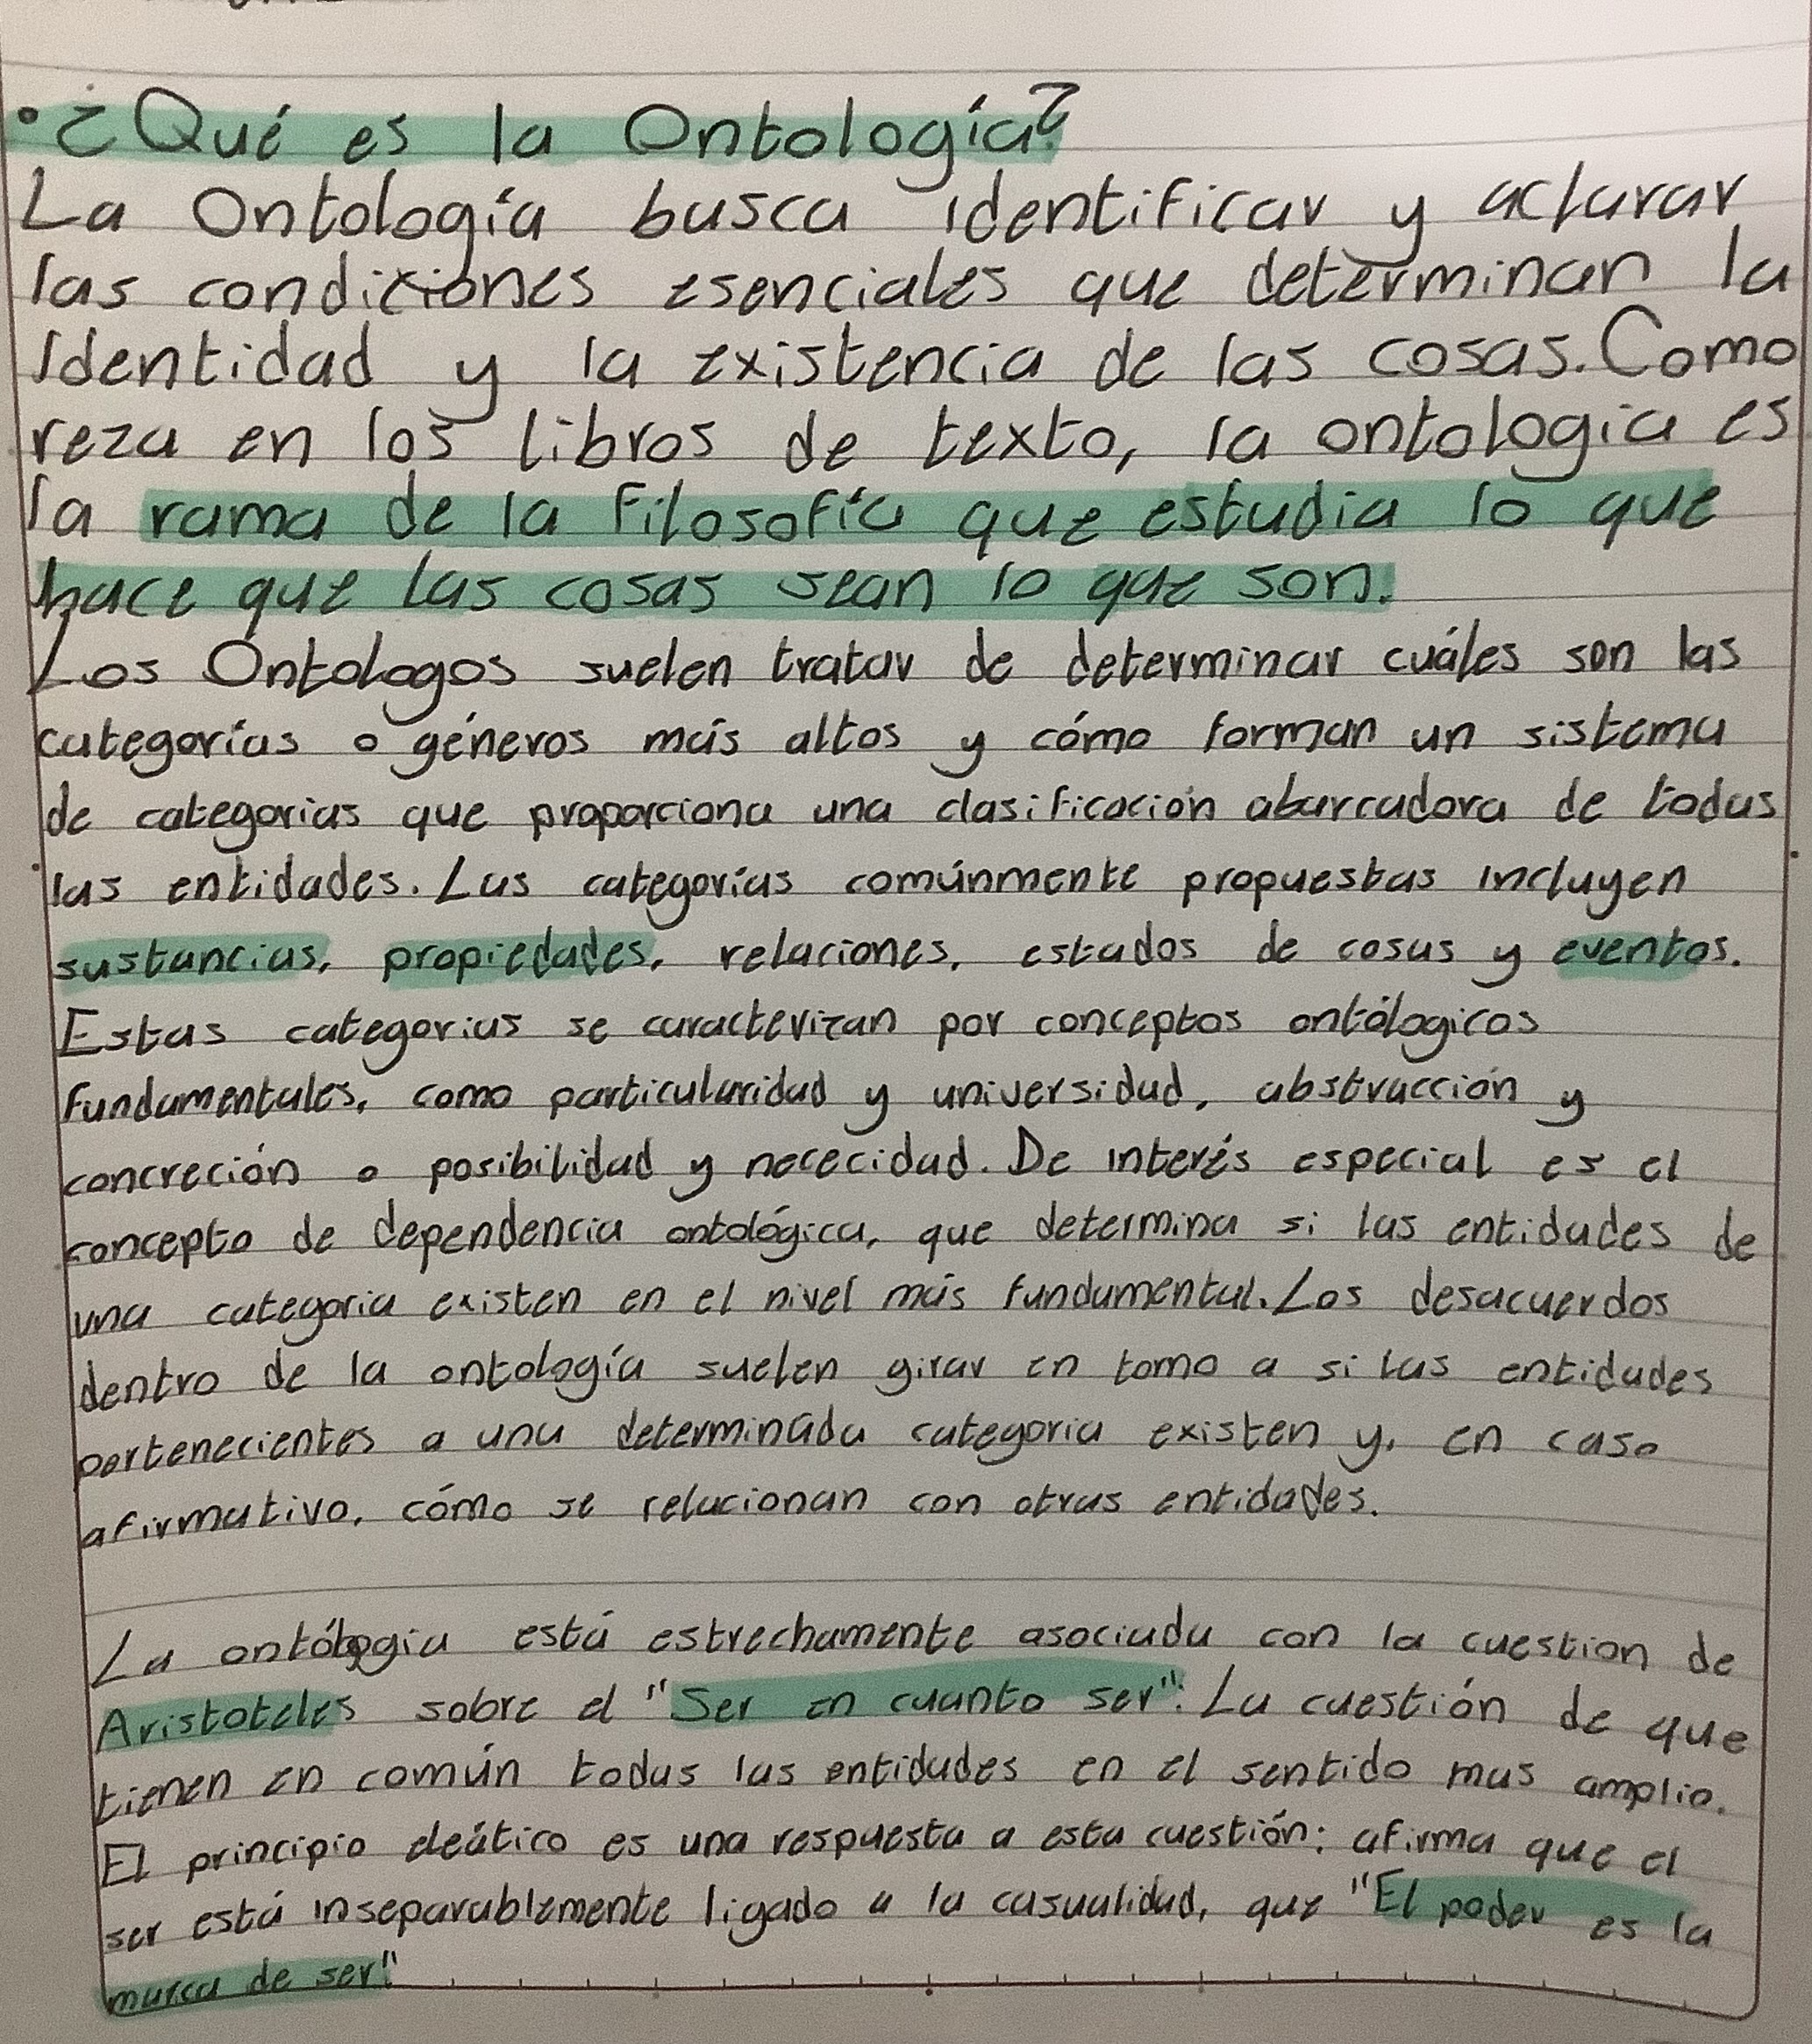 • ¿Qué es la Ontología?
La Ontología busca identificar y aclarar
las condiciones esenciales que determinan la
identidad y la existencia de las cosas. Como
reza en los libros de texto, la ontologia es
la rama de la filosofía que estudia lo que
hace que las cosas sean lo que son.
Los Ontologos suelen tratar de determinar cuáles son las
categorías o géneros más altos y cómo forman un sistema
de categorias que proporciona una clasificación abarcadora de todas
las entidades. Las categorías comúnmente propuestas incluyen
sustancias, propiedades, relaciones, estados de cosas y eventos.
Estas categorias se caracterizan por conceptos ontólogicos
fundamentales, como particularidad y universidad, abstracción y
concreción o posibilidad y nececidad. De interés especial es el
concepto de dependencia ontológica, que determina si las entidades de
una categoria existen en el nivel más fundamental. Los desacuerdos
dentro de la ontología suelen girar en torno a si las entidades
pertenecientes a una determinada categoria existen y, en caso
afirmativo, cómo se relacionan con otras entidades.
La ontólogia está estrechamente asociada con la cuestion de
Aristoteles sobre el "Ser en cuanto ser". La cuestión de que
tienen en común todas las entidades en el sentido mas amplio.
El principio eleático es una respuesta a esta cuestión: afirma que el
ser está inseparablemente ligado a la casualidad, que "El poder es la
marca de ser".